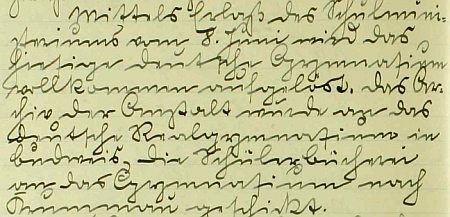 Mittels Erlaß des Schulmini-
steriums vom 8. Juni wird das
hiesige deutsche Gymnasium
vollkommen aufgelöst. Das Ar-
chiv der Anstalt wurde an das
deutsche Realgymnasium in
Budweis, die Schülerbücherei
an das Gymnasium nach
Krummau geschickt.